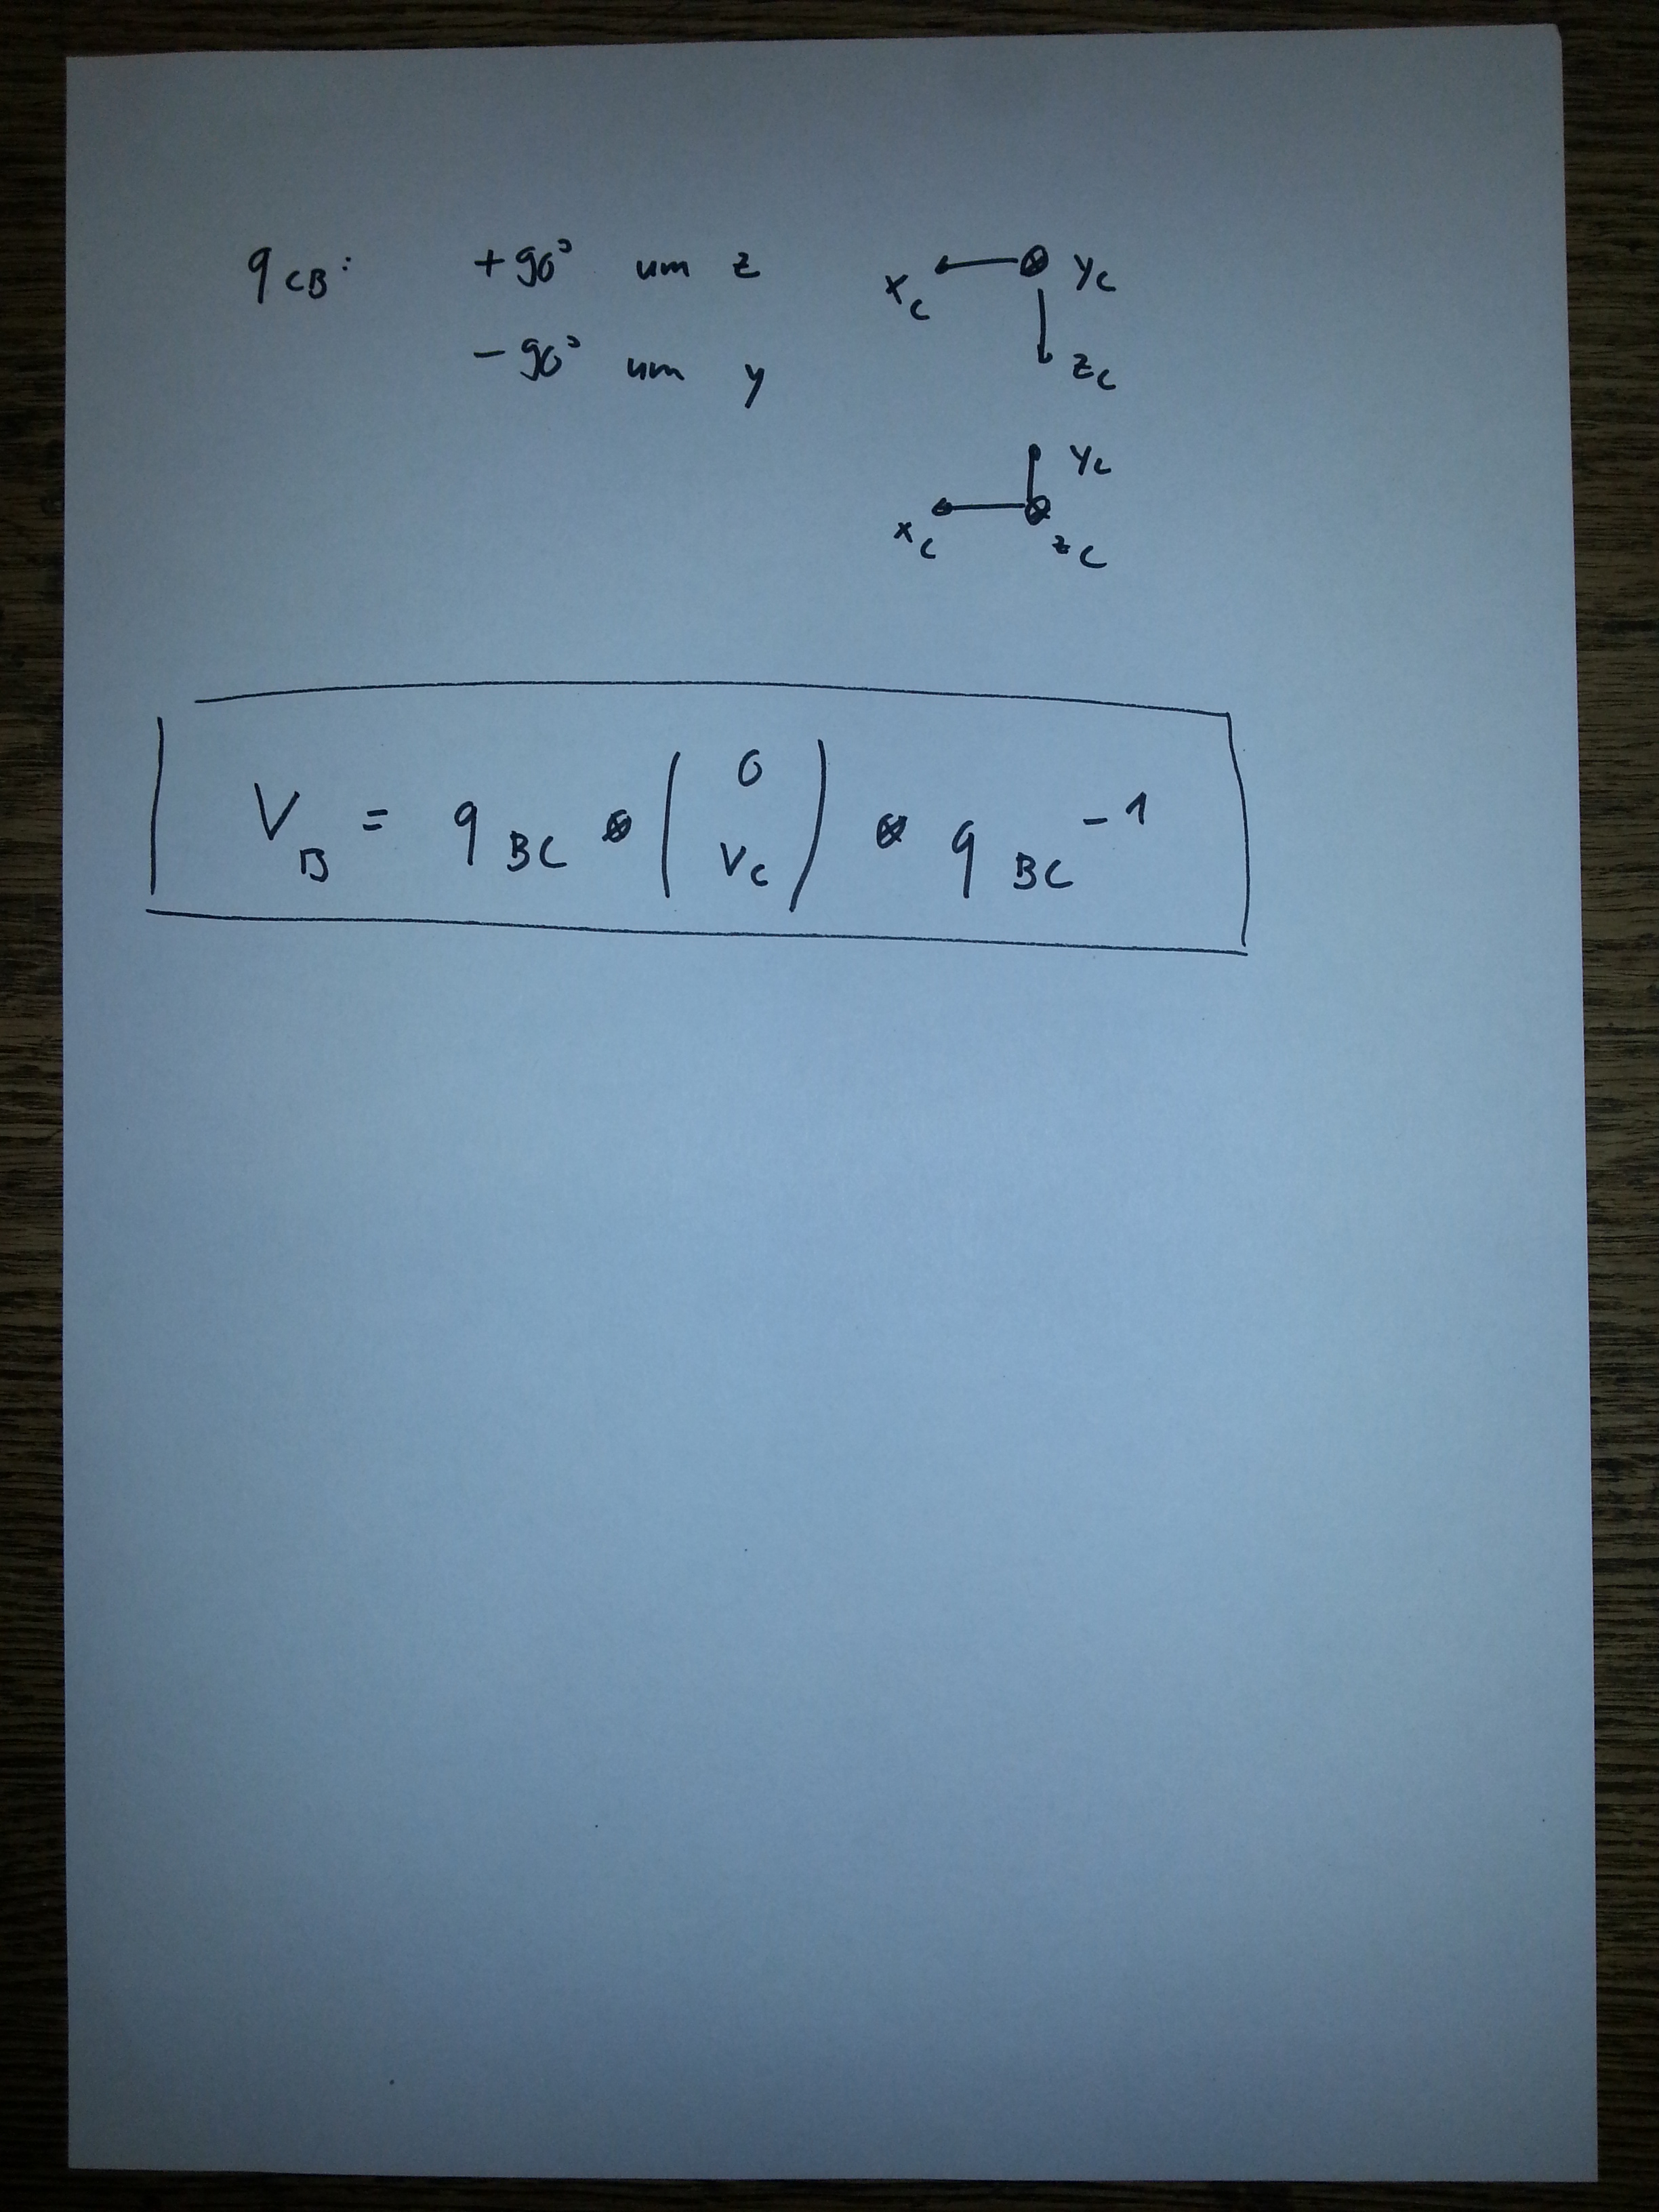 q CB: +90° um z
- 90° um y
x C y C
z C
y C
x C z C
V B = q BC ⊗ ( 0 v C ) ⊗ q BC -1